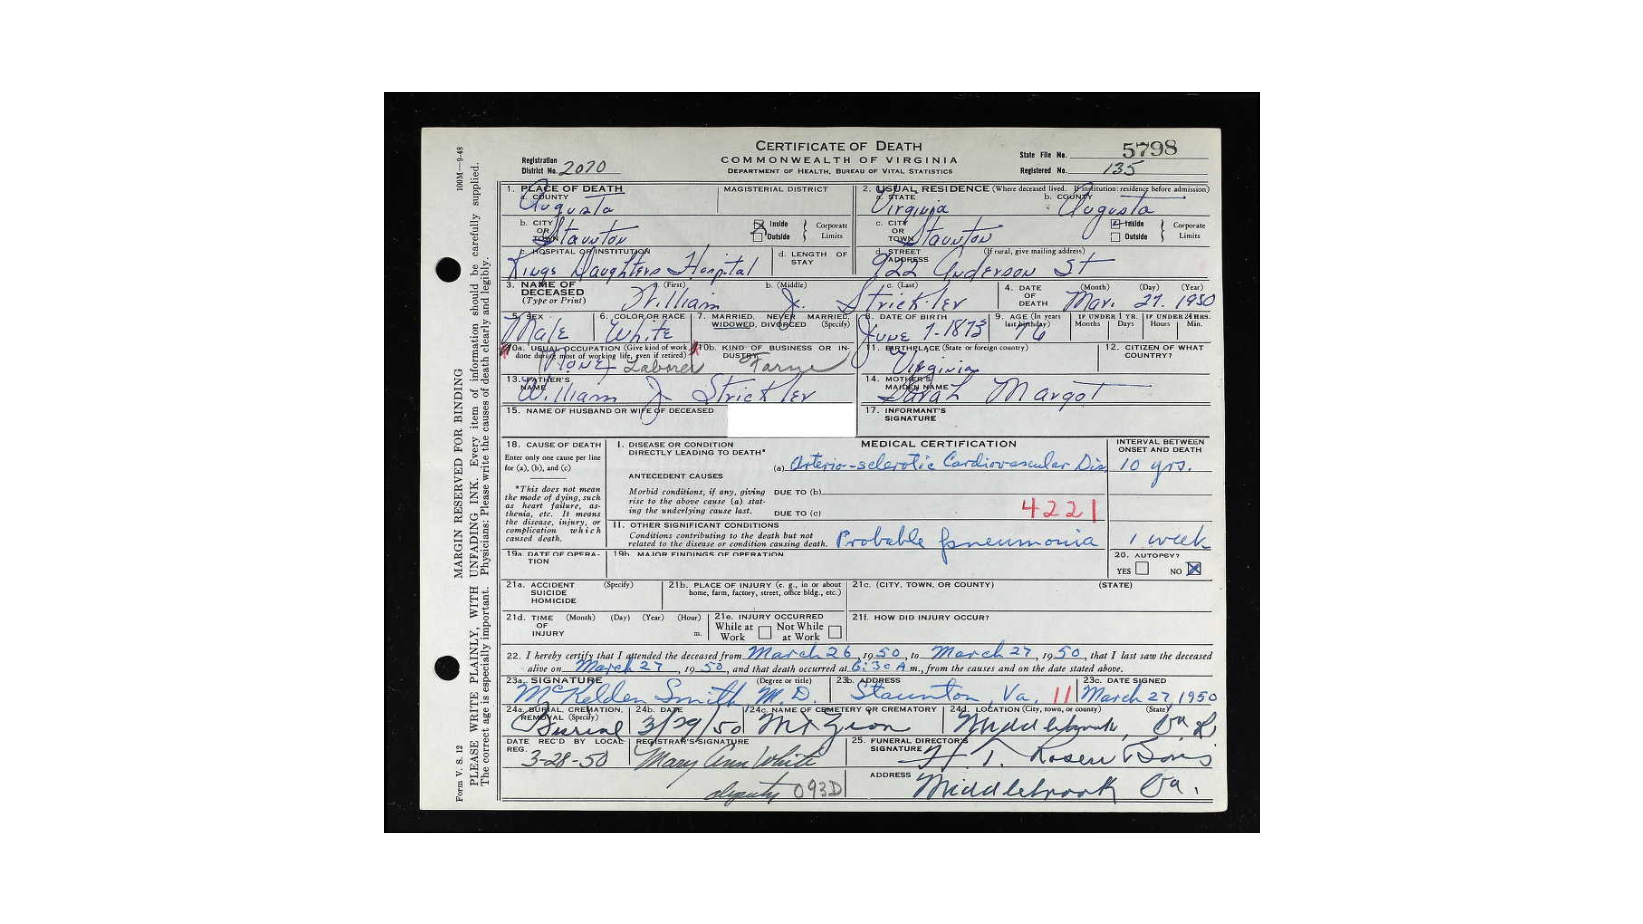 CERTIFICATE OF DEATH
COMMONWEALTH OF VIRGINIA
DEPARTMENT OF HEALTH, BUREAU OF VITAL STATISTICS
Registration District No. 2070
State File No. 5798
Registered No. 135
100M—9-48
MARGIN RESERVED FOR BINDING
PLEASE WRITE PLAINLY, WITH UNFADING INK. Every item of information should be carefully supplied.
The correct age is especially important. Physicians: Please write the causes of death clearly and legibly.
Form V. S. 12
1. PLACE OF DEATH
a. COUNTY Augusta
MAGISTERIAL DISTRICT
2. USUAL RESIDENCE (Where deceased lived. If institution: residence before admission)
a. STATE Virginia
b. COUNTY Augusta
b. CITY OR TOWN Staunton
Inside Outside Corporate Limits
c. CITY OR TOWN Staunton
Inside Outside Corporate Limits
c. HOSPITAL OR INSTITUTION Kings Daughters Hospital
d. LENGTH OF STAY
d. STREET ADDRESS (If rural, give mailing address) 922 Anderson St
3. NAME OF DECEASED (Type or Print)
a. (First) William
b. (Middle) J.
c. (Last) Strickler
4. DATE OF DEATH (Month) (Day) (Year) Mar. 27. 1950
5. SEX Male
6. COLOR OR RACE White
7. MARRIED, NEVER MARRIED, WIDOWED, DIVORCED (Specify)
8. DATE OF BIRTH June 7-1873
9. AGE (In years last birthday) 76
IF UNDER 1 YR. Months Days
IF UNDER 24 HRS. Hours Min.
10a. USUAL OCCUPATION (Give kind of work done during most of working life, even if retired) None Laborer
10b. KIND OF BUSINESS OR INDUSTRY Farm
11. BIRTHPLACE (State or foreign country) Virginia
12. CITIZEN OF WHAT COUNTRY?
13. FATHER'S NAME William J Strickler
14. MOTHER'S MAIDEN NAME Sarah Margot
15. NAME OF HUSBAND OR WIFE OF DECEASED
17. INFORMANT'S SIGNATURE
18. CAUSE OF DEATH
Enter only one cause per line for (a), (b), and (c)
*This does not mean the mode of dying, such as heart failure, asthenia, etc. It means the disease, injury, or complication which caused death.
MEDICAL CERTIFICATION
INTERVAL BETWEEN ONSET AND DEATH
I. DISEASE OR CONDITION DIRECTLY LEADING TO DEATH*
(a) Arterio-sclerotic Cardiovascular Dis 10 yrs.
ANTECEDENT CAUSES
Morbid conditions, if any, giving rise to the above cause (a) stating the underlying cause last.
DUE TO (b)
DUE TO (c)
4221
II. OTHER SIGNIFICANT CONDITIONS
Conditions contributing to the death but not related to the disease or condition causing death.
Probable pneumonia 1 week
19a. DATE OF OPERATION
19b. MAJOR FINDINGS OF OPERATION
20. AUTOPSY?
YES NO
21a. ACCIDENT SUICIDE HOMICIDE (Specify)
21b. PLACE OF INJURY (e. g., in or about home, farm, factory, street, office bldg., etc.)
21c. (CITY, TOWN, OR COUNTY) (STATE)
21d. TIME OF INJURY (Month) (Day) (Year) (Hour) m.
21e. INJURY OCCURRED
While at Work Not While at Work
21f. HOW DID INJURY OCCUR?
22. I hereby certify that I attended the deceased from March 26, 1950, to March 27, 1950, that I last saw the deceased
alive on March 27, 1950, and that death occurred at 6:30 A m., from the causes and on the date stated above.
23a. SIGNATURE (Degree or title) McKelden Smith M. D.
23b. ADDRESS Staunton, Va. 11
23c. DATE SIGNED March 27, 1950
24a. BURIAL, CREMATION, REMOVAL (Specify) Burial
24b. DATE 3/29/50
24c. NAME OF CEMETERY OR CREMATORY Mt Zion
24d. LOCATION (City, town, or county) (State) Middlebrook, Va.
DATE REC'D BY LOCAL REG. 3-28-50
REGISTRAR'S SIGNATURE Mary Ann White
deputy 093D
25. FUNERAL DIRECTOR'S SIGNATURE
ADDRESS Middlebrook Va.